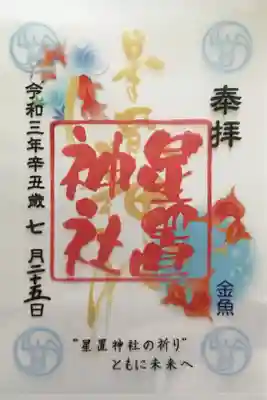 奉拝
星置
神社
令和三年辛丑歳七月二十五日
金魚
"星置神社の祈り"
ともに未来へ